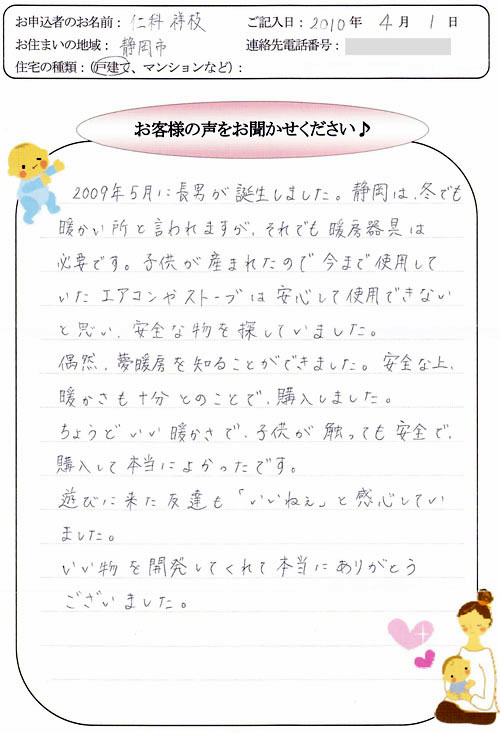 お申込者のお名前：仁科 祥枝　ご記入日：2010年 4月 1日
お住まいの地域：静岡市　連絡先電話番号：
住宅の種類：（戸建て、マンションなど）：
お客様の声をお聞かせください♪
2009年5月に長男が誕生しました。静岡は、冬でも
暖かい所と言われますが、それでも暖房器具は
必要です。子供が産まれたので今まで使用して
いたエアコンやストーブは安心して使用できない
と思い、安全な物を探していました。
偶然、夢暖房を知ることができました。安全な上、
暖かさも十分とのことで、購入しました。
ちょうどいい暖かさで、子供が触っても安全で、
購入して本当によかったです。
遊びに来た友達も「いいねぇ」と感心してい
ました。
いい物を開発してくれて本当にありがとう
ございました。